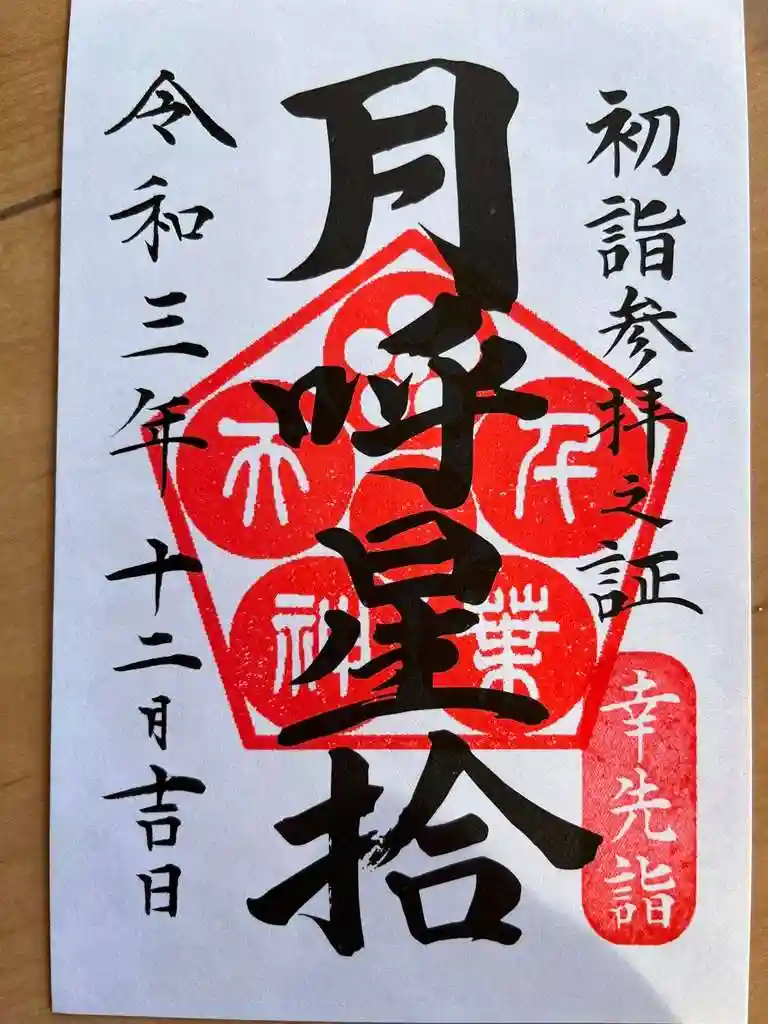 初詣参拝之証
幸先詣
月呼星拾
千葉
天神
令和三年 十二月吉日